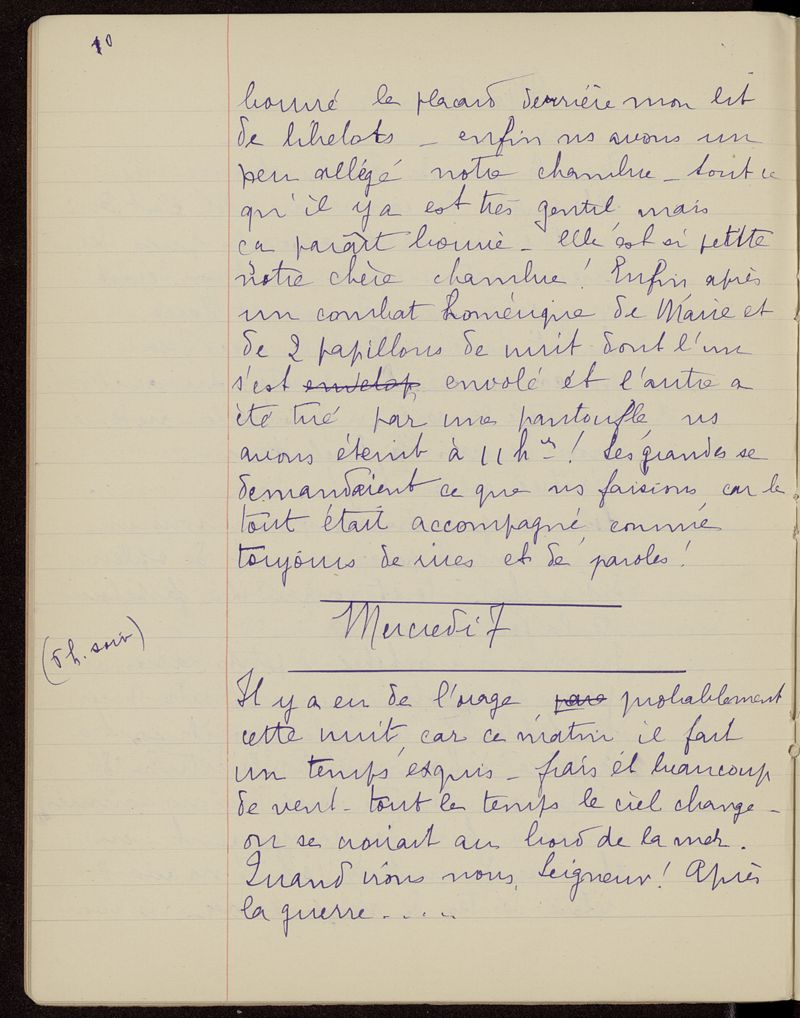 10
bourré le placard derrière mon lit
de bibelots – enfin ns avons un
peu allégé notre chambre – tout ce
qu'il y a est très gentil, mais
ça paraît bourré – Elle est si petite
notre chère chambre ! Enfin après
un combat homérique de Marie et
de 2 papillons de nuit dont l'un
s'est envelop envolé et l'autre a
été tué par une pantoufle, ns
avons éteint à 11 hrs ! Les grandes se
demandaient ce que ns faisions car le
tout était accompagné, comme
toujours de rires et de paroles !
Mercredi 7
(5 h. soir)
Il y a eu de l'orage, pare probablement
cette nuit, car ce matin il fait
un temps exquis – frais et beaucoup
de vent – tout le temps le ciel change –
on se croirait au bord de la mer.
Quand irons nous, Seigneur ! Après
la guerre .....